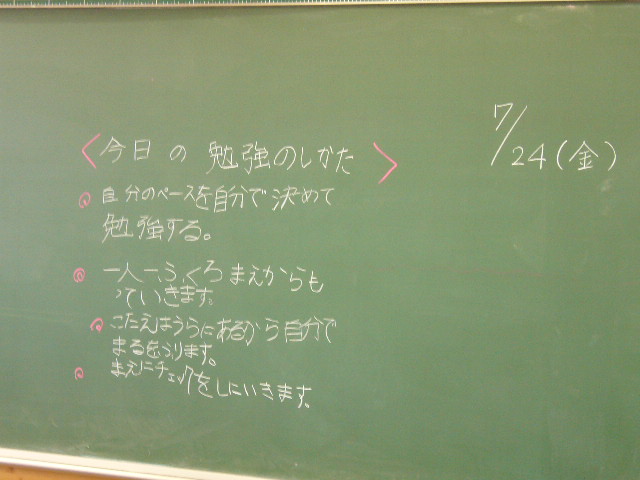 7/24(金)
<今日の勉強のしかた>
自分のペースを自分で決めて
勉強する。
一人一ふくろまえからも
っていきます。
こたえはうらにあるから自分で
まるをふります。
まえにチェックをしにいきます。